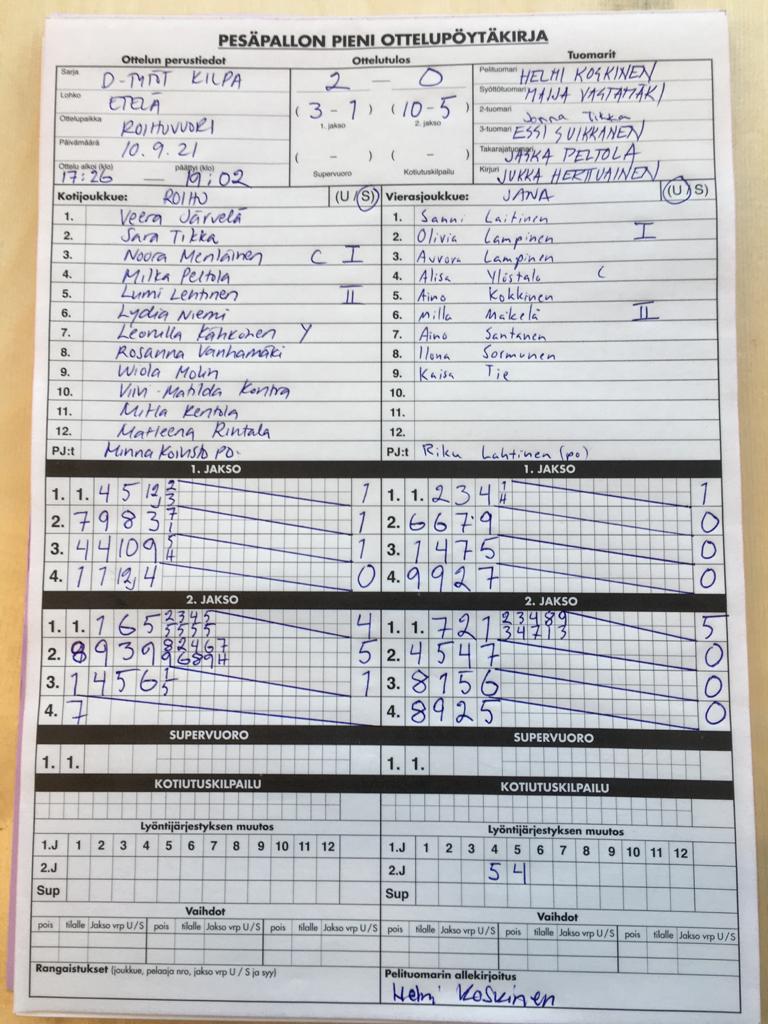 PESÄPALLON PIENI OTTELUPÖYTÄKIRJA
Ottelun perustiedot Ottelutulos Tuomarit
Sarja D-TYTÖT KILPA
Lohko ETELÄ
Ottelupaikka ROIHUVUORI
Päivämäärä 10.9.21
Ottelu alkoi (klo) päättyi (klo)
17:26 — 19:02
2 — 0
(3-1) (10-5)
1. jakso 2. jakso
( - ) ( - )
Supervuoro Kotiutuskilpailu
Pelituomari HELMI KOSKINEN
Syöttötuomari MAIJA VASTAMÄKI
2-tuomari Jonna Tikka
3-tuomari ESSI SUIKKANEN
Takarajatuomari JASKA PELTOLA
Kirjuri JUKKA HERTTUAINEN
Kotijoukkue: ROIHU (U/S)
1. Veera Järvelä
2. Sara Tikka
3. Noora Menläinen C I
4. Milka Peltola
5. Lumi Lehtinen II
6. Lydia Niemi
7. Leonilla Kähkönen Y
8. Rosanna Vanhamäki
9. Wiola Molin
10. Viivi-Matilda Kontra
11. Milla Rentola
12. Marleena Rintala
PJ:t Minna Koivisto PO.
Vierasjoukkue: JANA (U/S)
1. Sanni Laitinen
2. Olivia Lampinen I
3. Aurora Lampinen
4. Alisa Ylöstalo C
5. Aino Kokkinen
6. Milla Mäkelä II
7. Aino Santanen
8. Ilona Sormunen
9. Kaisa Tie
10.
11.
12.
PJ:t Riku Lahtinen (po)
1. JAKSO
1. 1. 4 5 12 2 3 1
2. 7 9 8 3 7 1 1
3. 4 4 10 9 5 4 1
4. 1 1 12 4 0
1. JAKSO
1. 1. 2 3 4 1 4 1
2. 6 6 7 9 0
3. 1 4 7 5 0
4. 9 9 2 7 0
2. JAKSO
1. 1. 1 6 5 2 3 4 5 5 5 5 5 4
2. 8 9 3 9 8 2 4 6 7 9 6 8 9 4 5
3. 1 4 5 6 1 5 1
4. 7
2. JAKSO
1. 1. 7 2 1 2 3 4 8 9 3 4 7 1 3 5
2. 4 5 4 7 0
3. 8 1 5 6 0
4. 8 9 2 5 0
SUPERVUORO SUPERVUORO
1. 1. 1. 1.
KOTIUTUSKILPAILU KOTIUTUSKILPAILU
Lyöntijärjestyksen muutos
1.J 1 2 3 4 5 6 7 8 9 10 11 12
2.J
Sup
Vaihdot
pois tilalle Jakso vrp U/S pois tilalle Jakso vrp U/S pois tilalle Jakso vrp U/S
Rangaistukset (joukkue, pelaaja nro, jakso vrp U / S ja syy)
Lyöntijärjestyksen muutos
1.J 1 2 3 4 5 6 7 8 9 10 11 12
2.J 5 4
Sup
Vaihdot
pois tilalle Jakso vrp U/S pois tilalle Jakso vrp U/S pois tilalle Jakso vrp U/S
Pelituomarin allekirjoitus
Helmi Koskinen